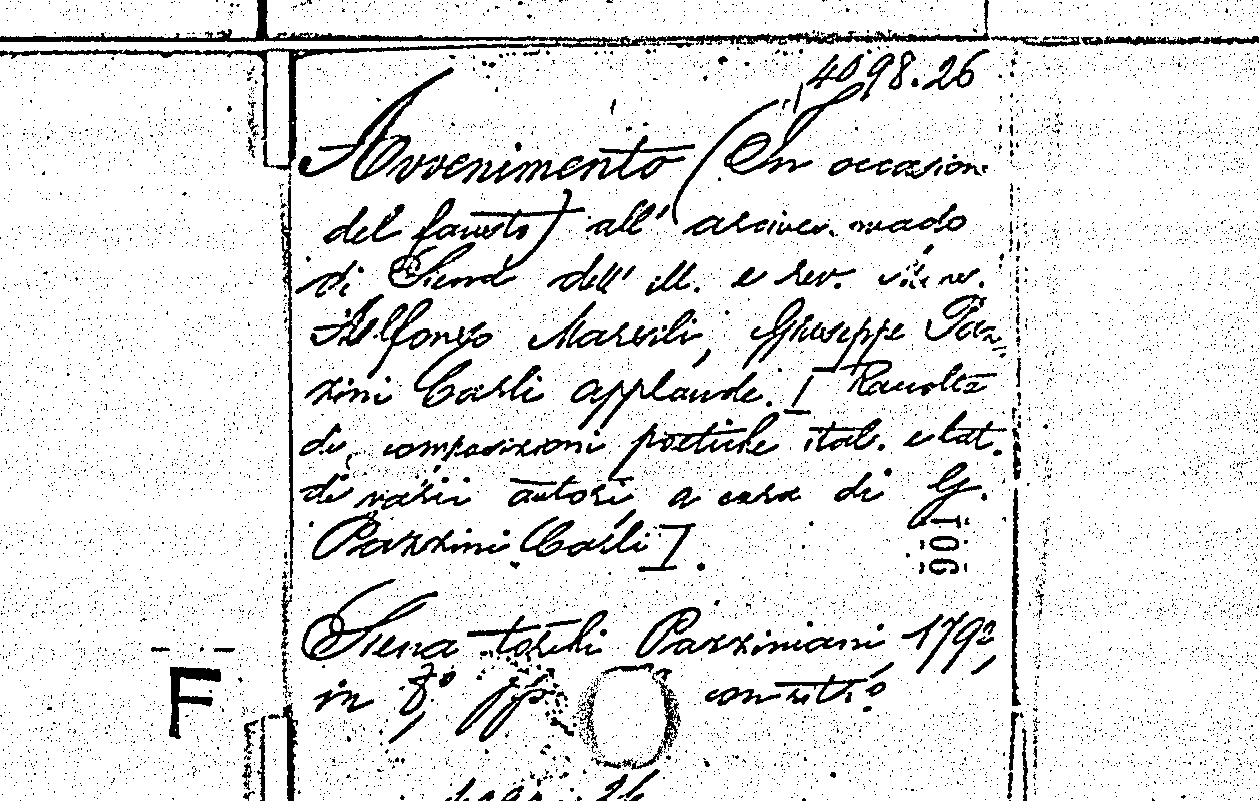 4098.26
Avvenimento (In occasion
del fausto) all' arcives. mado
di Siena dell' ill. e rev.
Alfonso Marsili, Giuseppe Paz-
zini Carli applaude. [ Raccolta
di composizioni poetiche ital. e lat.
di varii autori, a cura di G.
Pazzini Carli ].
1006
Siena torchi Pazziniani 1792,
in 8°, pp. con ritr.°
F